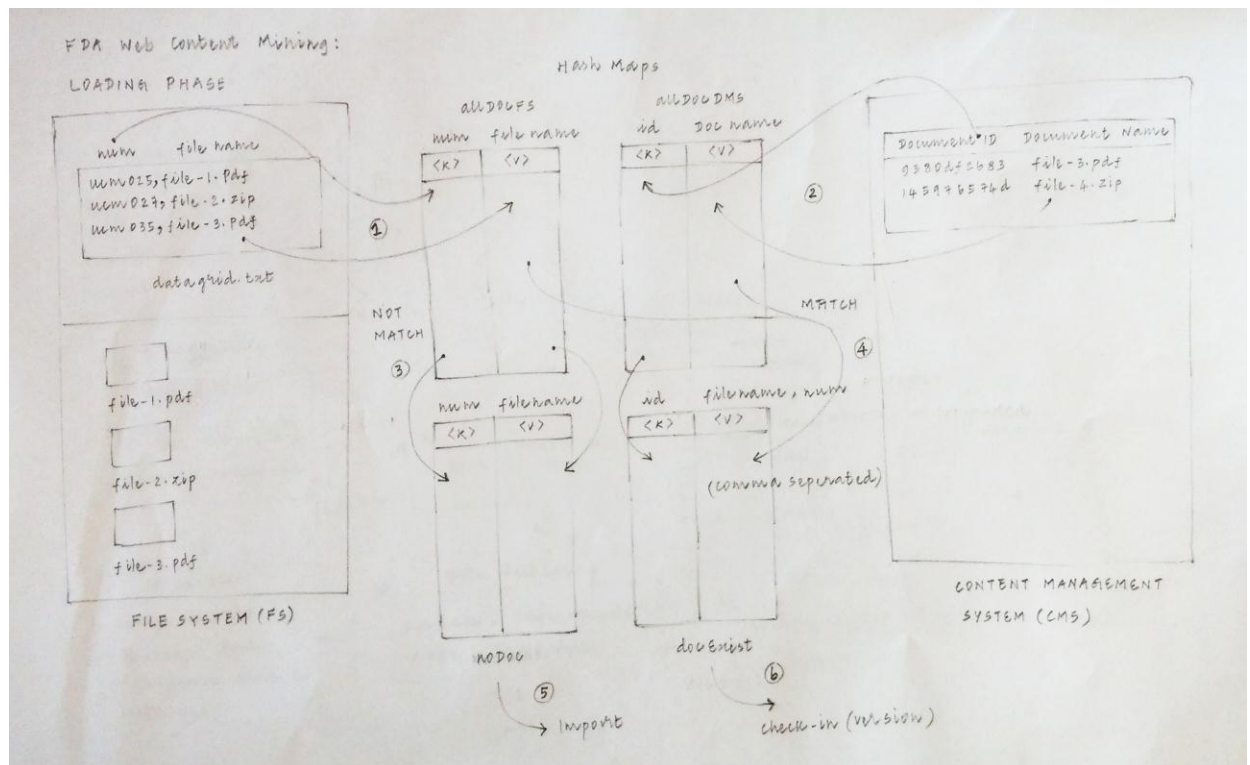 FDA Web Content Mining:
LOADING PHASE
num file name
ucm025, file-1.pdf
ucm027, file-2.zip
ucm035, file-3.pdf
datagrid.txt
file-1.pdf
file-2.zip
file-3.pdf
FILE SYSTEM (FS)
Hash Maps
allDocFS
num file name
<K> <V>
①
NOT
MATCH
③
num filename
<K> <V>
noDoc
⑤
Import
allDocDMS
id Doc name
<K> <V>
②
MATCH
④
id filename, num
<K> <V>
(comma seperated)
docExist
⑥
check-in (version)
Document ID Document Name
9380df2b83 file-3.pdf
145976574d file-4.zip
CONTENT MANAGEMENT
SYSTEM (CMS)